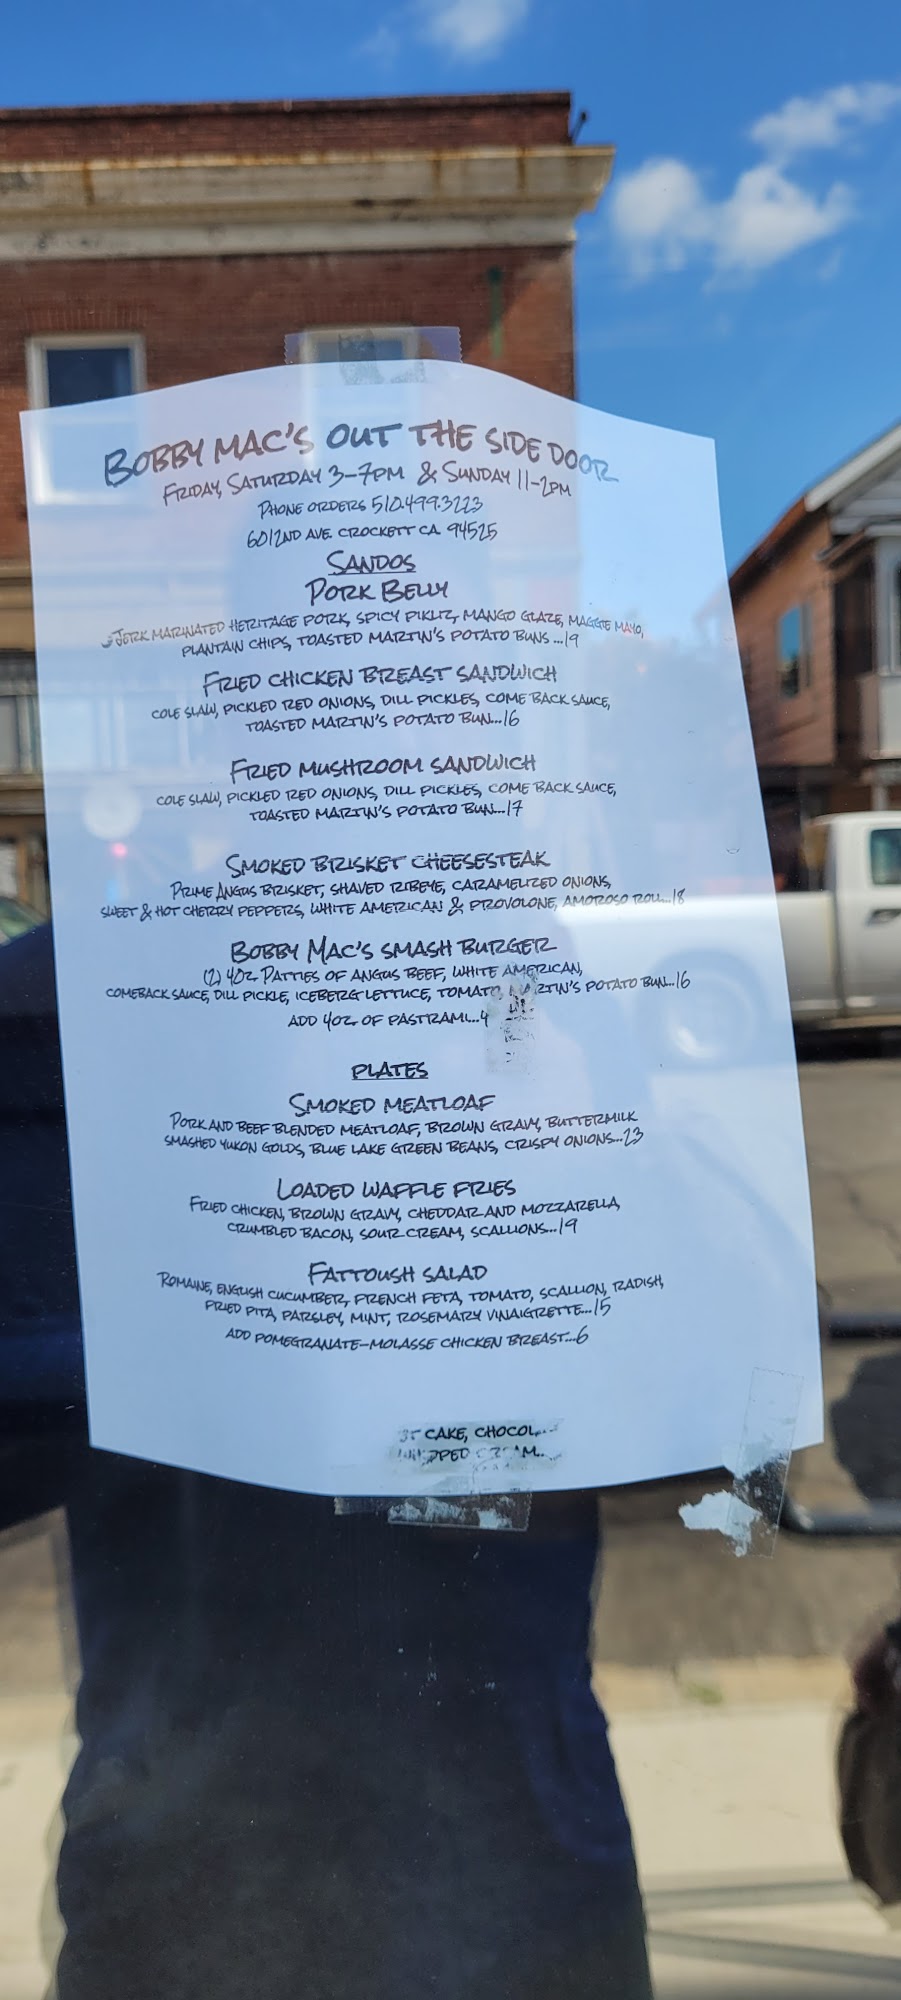 BOBBY MAC'S OUT THE SIDE DOOR
FRIDAY, SATURDAY 3-7PM & SUNDAY 11-2PM
PHONE ORDERS 510.499.3223
601 2ND AVE. CROCKETT CA. 94525
SANDOS
PORK BELLY
JERK MARINATED HERITAGE PORK, SPICY PIKLIZ, MANGO GLAZE, MAGGIE MAYO,
PLANTAIN CHIPS, TOASTED MARTIN'S POTATO BUNS ...19
FRIED CHICKEN BREAST SANDWICH
COLE SLAW, PICKLED RED ONIONS, DILL PICKLES, COME BACK SAUCE,
TOASTED MARTIN'S POTATO BUN...16
FRIED MUSHROOM SANDWICH
COLE SLAW, PICKLED RED ONIONS, DILL PICKLES, COME BACK SAUCE,
TOASTED MARTIN'S POTATO BUN...17
SMOKED BRISKET CHEESESTEAK
PRIME ANGUS BRISKET, SHAVED RIBEYE, CARAMELIZED ONIONS,
SWEET & HOT CHERRY PEPPERS, WHITE AMERICAN & PROVOLONE, AMOROSO ROLL...18
BOBBY MAC'S SMASH BURGER
(2) 4OZ. PATTIES OF ANGUS BEEF, WHITE AMERICAN,
COMEBACK SAUCE, DILL PICKLE, ICEBERG LETTUCE, TOMATO, MARTIN'S POTATO BUN...16
ADD 4OZ. OF PASTRAMI...4
PLATES
SMOKED MEATLOAF
PORK AND BEEF BLENDED MEATLOAF, BROWN GRAVY, BUTTERMILK
SMASHED YUKON GOLDS, BLUE LAKE GREEN BEANS, CRISPY ONIONS...23
LOADED WAFFLE FRIES
FRIED CHICKEN, BROWN GRAVY, CHEDDAR AND MOZZARELLA,
CRUMBLED BACON, SOUR CREAM, SCALLIONS...19
FATTOUSH SALAD
ROMAINE, ENGLISH CUCUMBER, FRENCH FETA, TOMATO, SCALLION, RADISH,
FRIED PITA, PARSLEY, MINT, ROSEMARY VINAIGRETTE...15
ADD POMEGRANATE-MOLASSE CHICKEN BREAST...6
CAKE,